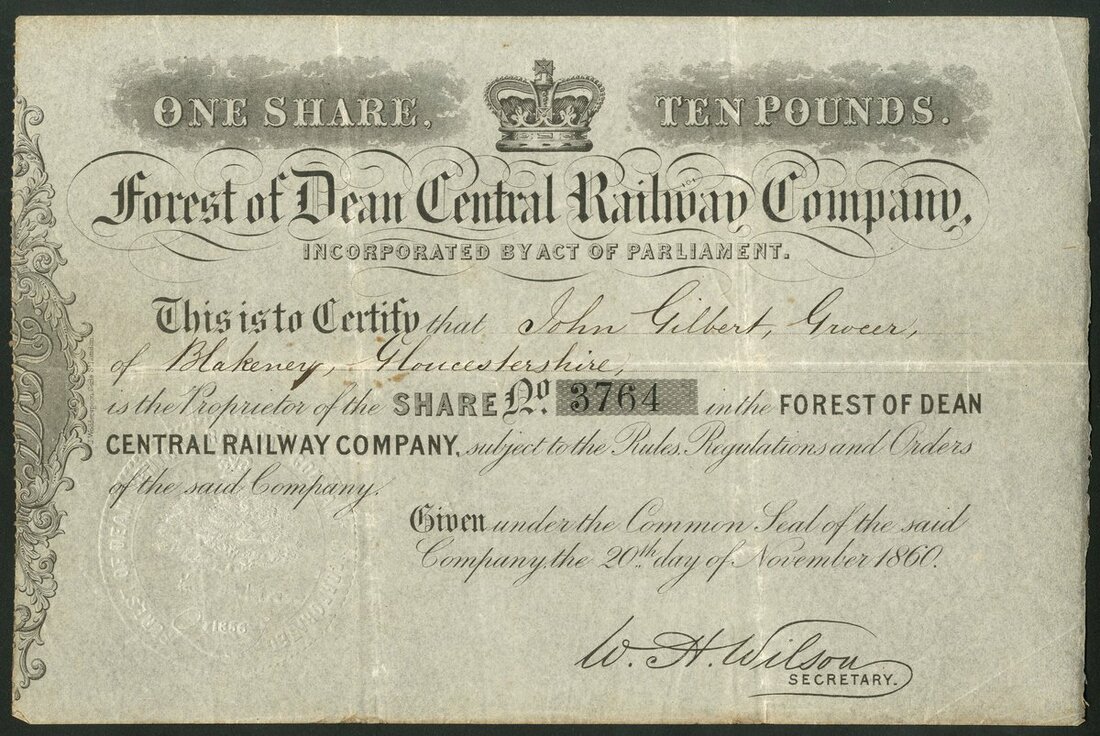 ONE SHARE,
TEN POUNDS.
Forest of Dean Central Railway Company,
INCORPORATED BY ACT OF PARLIAMENT.
This is to Certify that John Gilbert, Grocer,
of Blakeney, Gloucestershire,
is the Proprietor of the SHARE No. 3764 in the FOREST OF DEAN
CENTRAL RAILWAY COMPANY, subject to the Rules, Regulations and Orders
of the said Company.
Given under the Common Seal of the said
Company, the 20th day of November 1860.
1856
W. H. Wilson
SECRETARY.